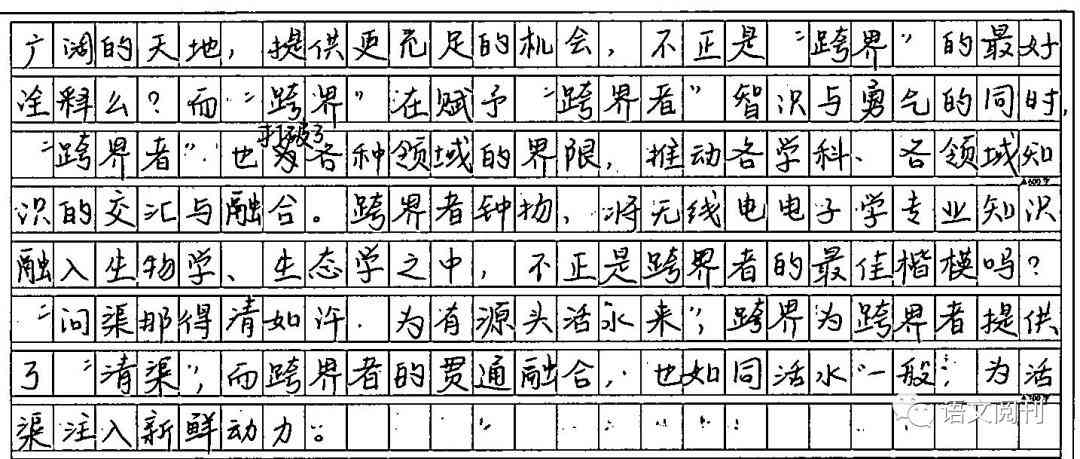 广阔的天地，提供更充足的机会，不正是“跨界”的最好
诠释么？而“跨界”在赋予“跨界者”智识与勇气的同时，
打破了
“跨界者”也为各种领域的界限，推动各学科、各领域知
▲600字
识的交汇与融合。跨界者钟扬，将无线电电子学专业知识
融入生物学、生态学之中，不正是跨界者的最佳楷模吗？
“问渠那得清如许，为有源头活水来”，跨界为跨界者提供
了“清渠”，而跨界者的贯通融合，也如同活水“一般”，为活
▲700字
渠注入新鲜动力。
语文阅刊